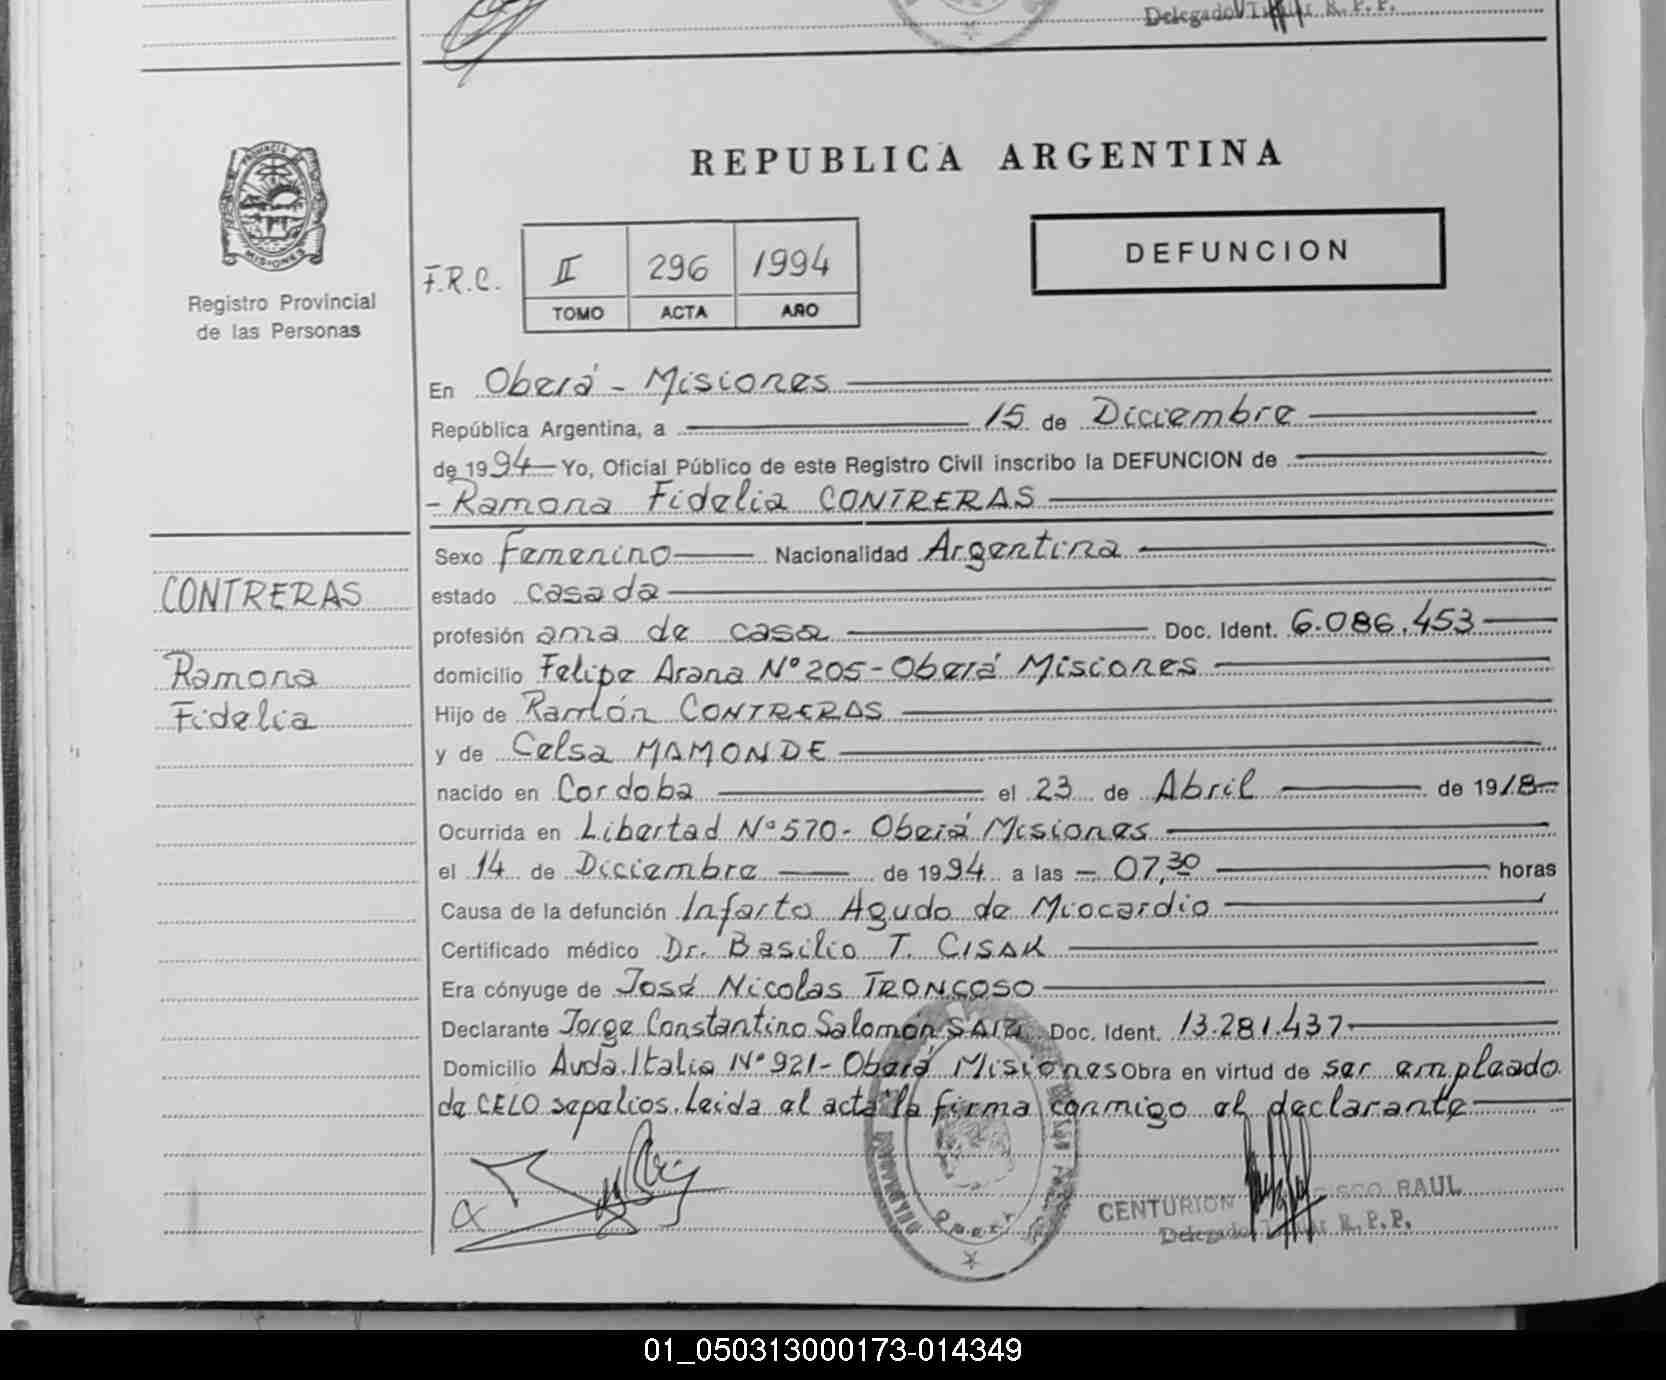 Delegado Titular R. P. P.
REPUBLICA ARGENTINA
PROVINCIA DE
MISIONES
Registro Provincial
de las Personas
F.R.C.
II 296 1994
TOMO ACTA AÑO
DEFUNCION
En Oberá - Misiones
República Argentina, a 15 de Diciembre
de 1994 Yo, Oficial Público de este Registro Civil inscribo la DEFUNCION de
- Ramona Fidelia CONTRERAS
CONTRERAS
Ramona
Fidelia
Sexo Femenino Nacionalidad Argentina
estado casada
profesión ama de casa Doc. Ident. 6.086.453
domicilio Felipe Arana Nº 205 - Oberá Misiones
Hijo de Ramón CONTRERAS
y de Celsa MAMONDE
nacido en Cordoba el 23 de Abril de 1918-
Ocurrida en Libertad Nº 570 - Oberá Misiones
el 14 de Diciembre de 1994 a las - 07,30 horas
Causa de la defunción Infarto Agudo de Miocardio
Certificado médico Dr. Basilio T. CISAK
Era cónyuge de José Nicolas TRONCOSO
Declarante Jorge Constantino Salomon Doc. Ident. 13.281.437
Domicilio Avda. Italia Nº 921 - Oberá Misiones Obra en virtud de ser empleado
de CELO sepelios. Leida el acta la firma conmigo el declarante
CENTURION RAUL
Delegado R. P. P.
01_050313000173-014349